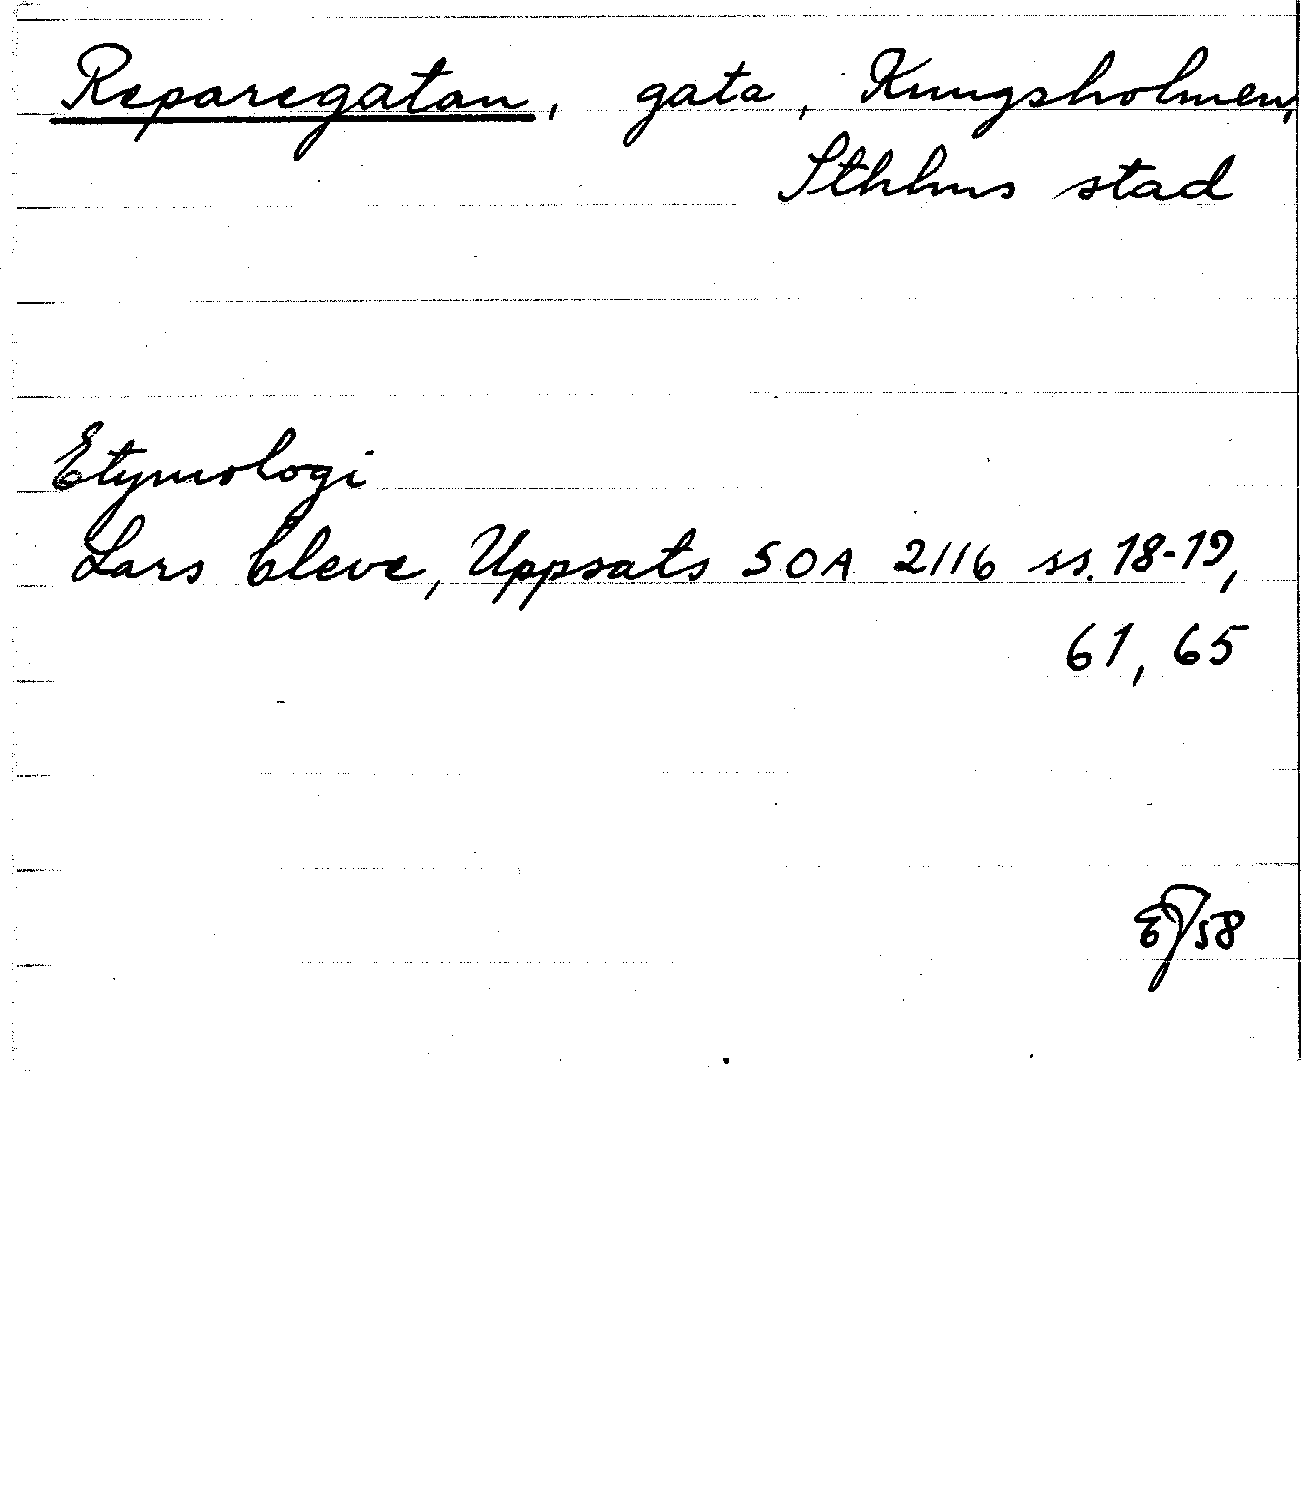 Reparegatan, gata, Kungsholmen,
Sthlms stad
Etymologi
Lars Cleve, Uppsats SOA 2116 ss. 18-19,
61, 65
58